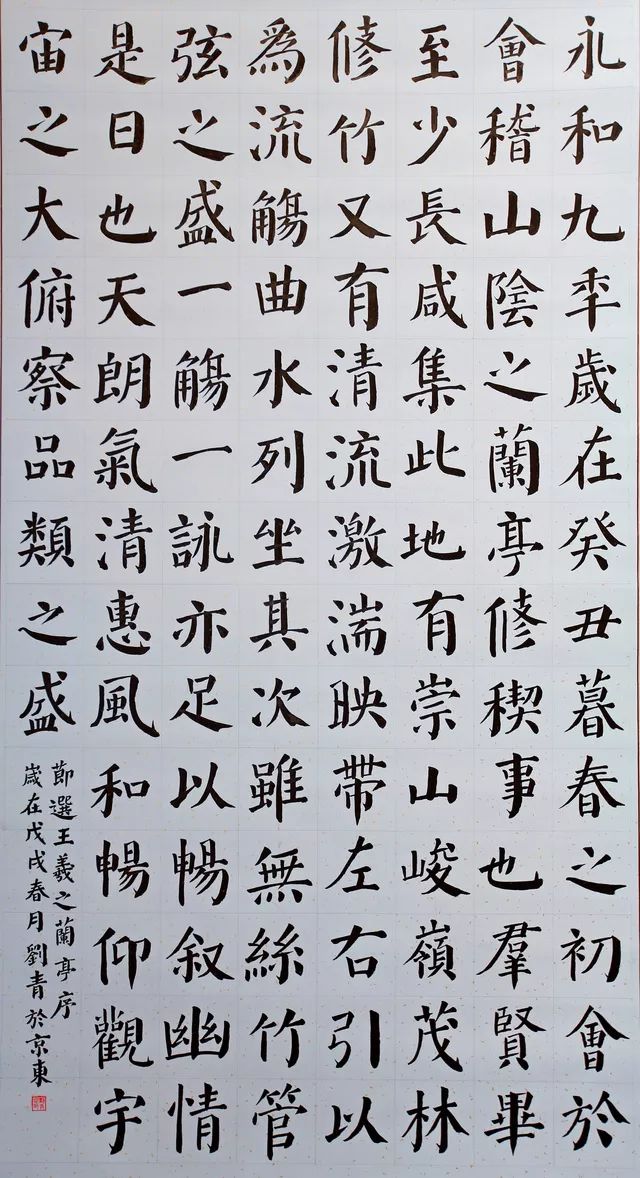 永和九年歲在癸丑暮春之初會於
會稽山陰之蘭亭修稧事也羣賢畢
至少長咸集此地有崇山峻嶺茂林
修竹又有清流激湍映帶左右引以
爲流觴曲水列坐其次雖無絲竹管
弦之盛一觴一詠亦足以暢叙幽情
是日也天朗氣清惠風和暢仰觀宇
宙之大俯察品類之盛
節選王羲之蘭亭序
歲在戊戌春月劉青於京東